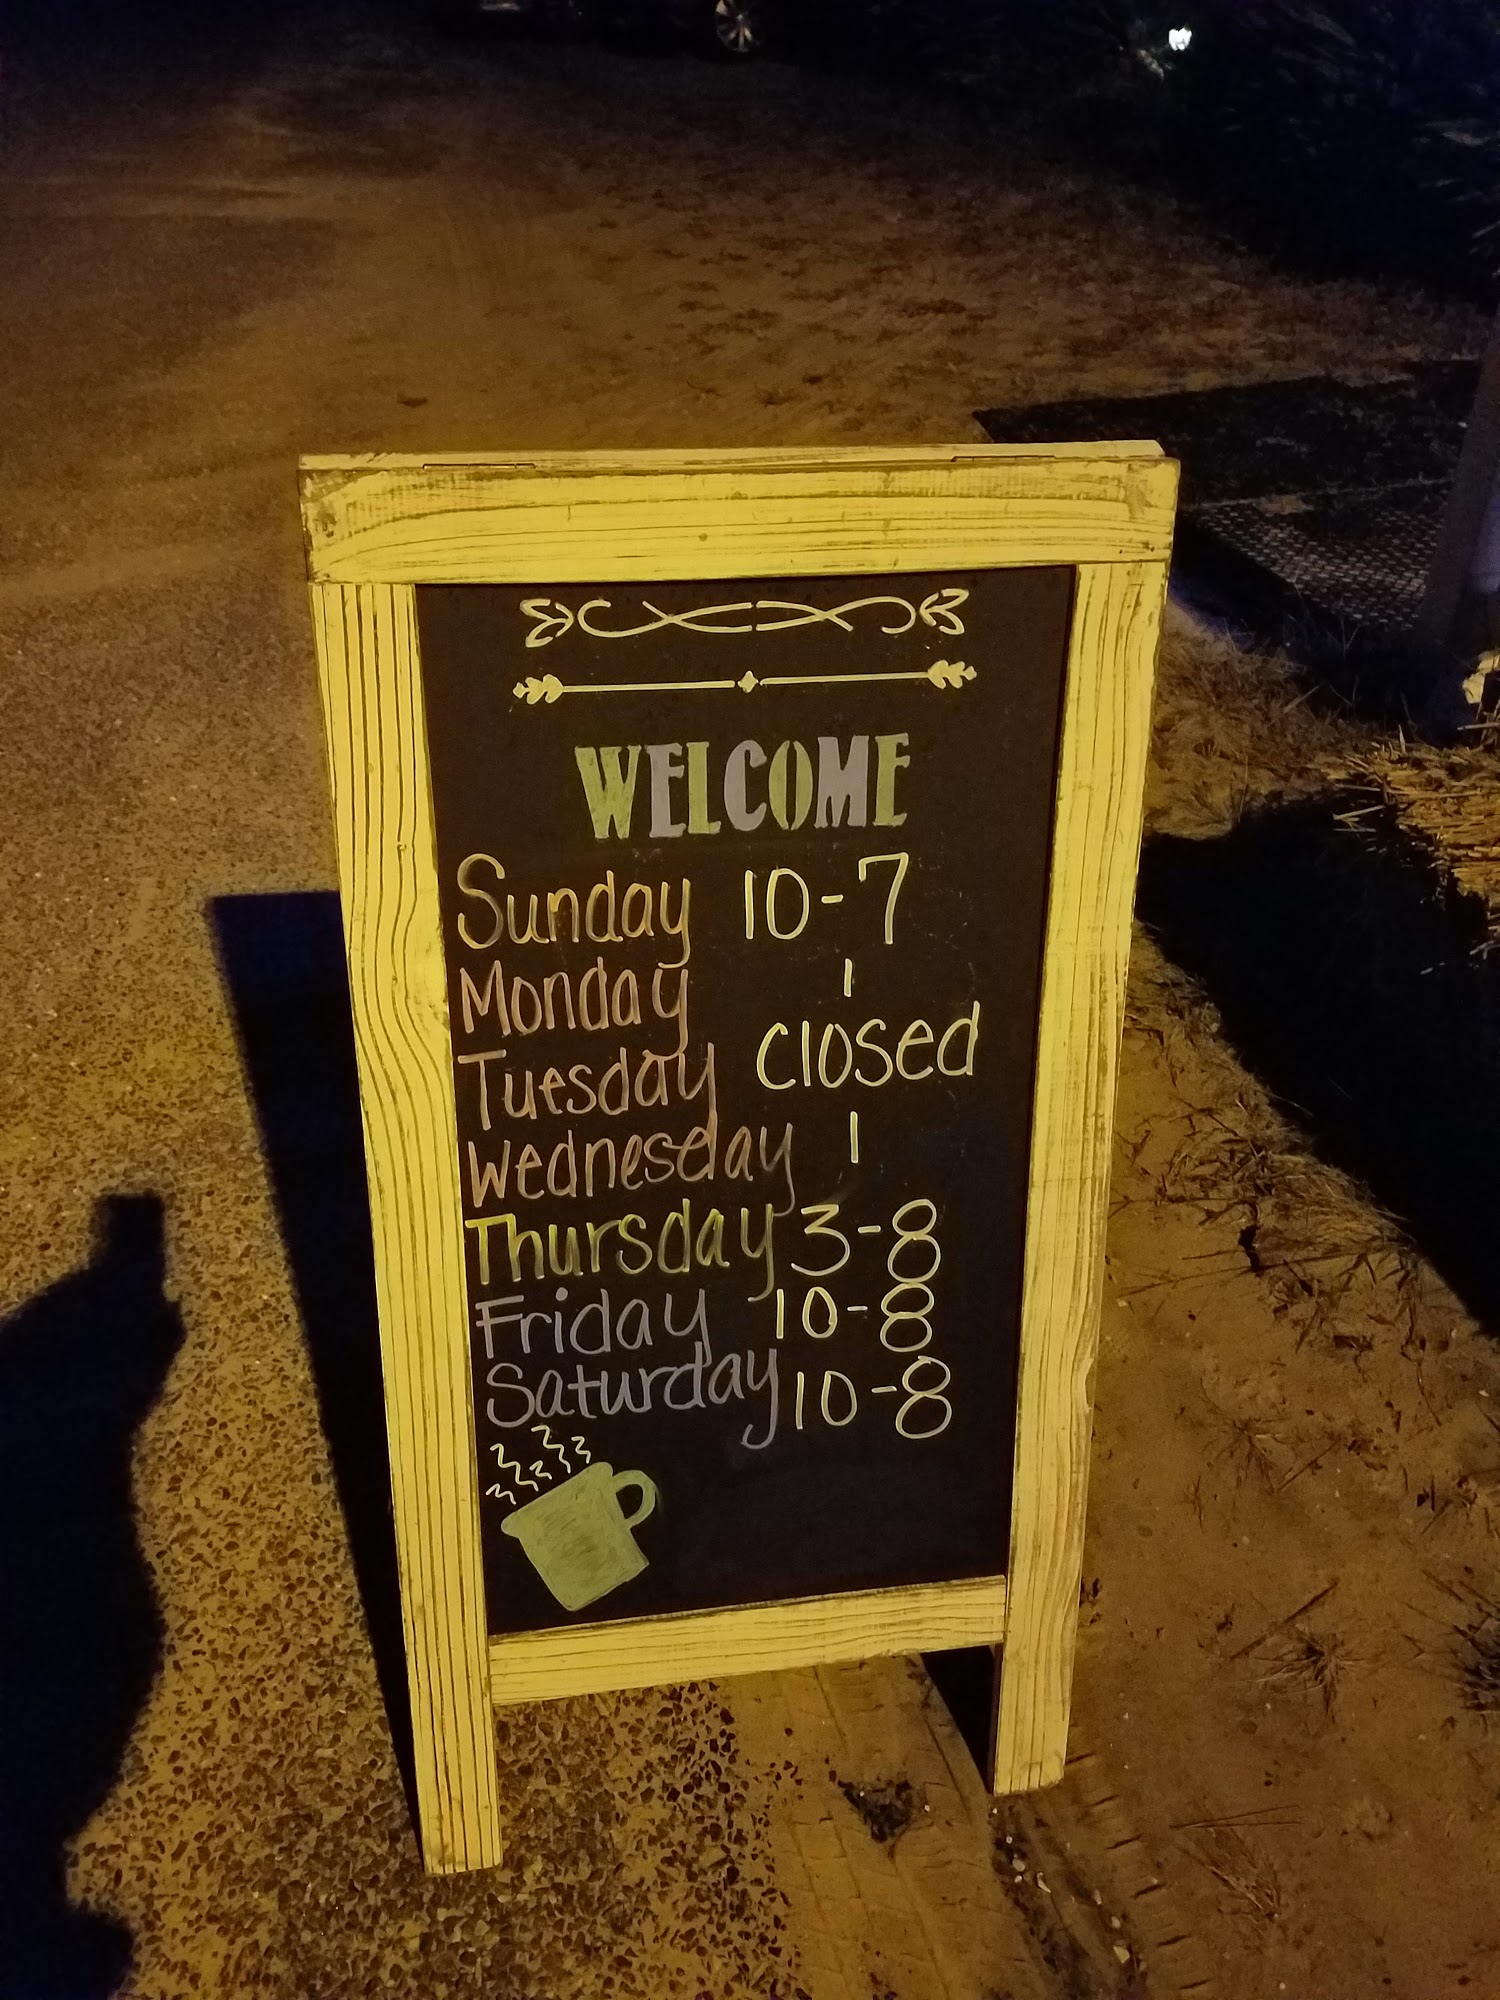 WELCOME
Sunday 10-7
Monday
Tuesday closed
Wednesday
Thursday 3-8
Friday 10-8
Saturday 10-8